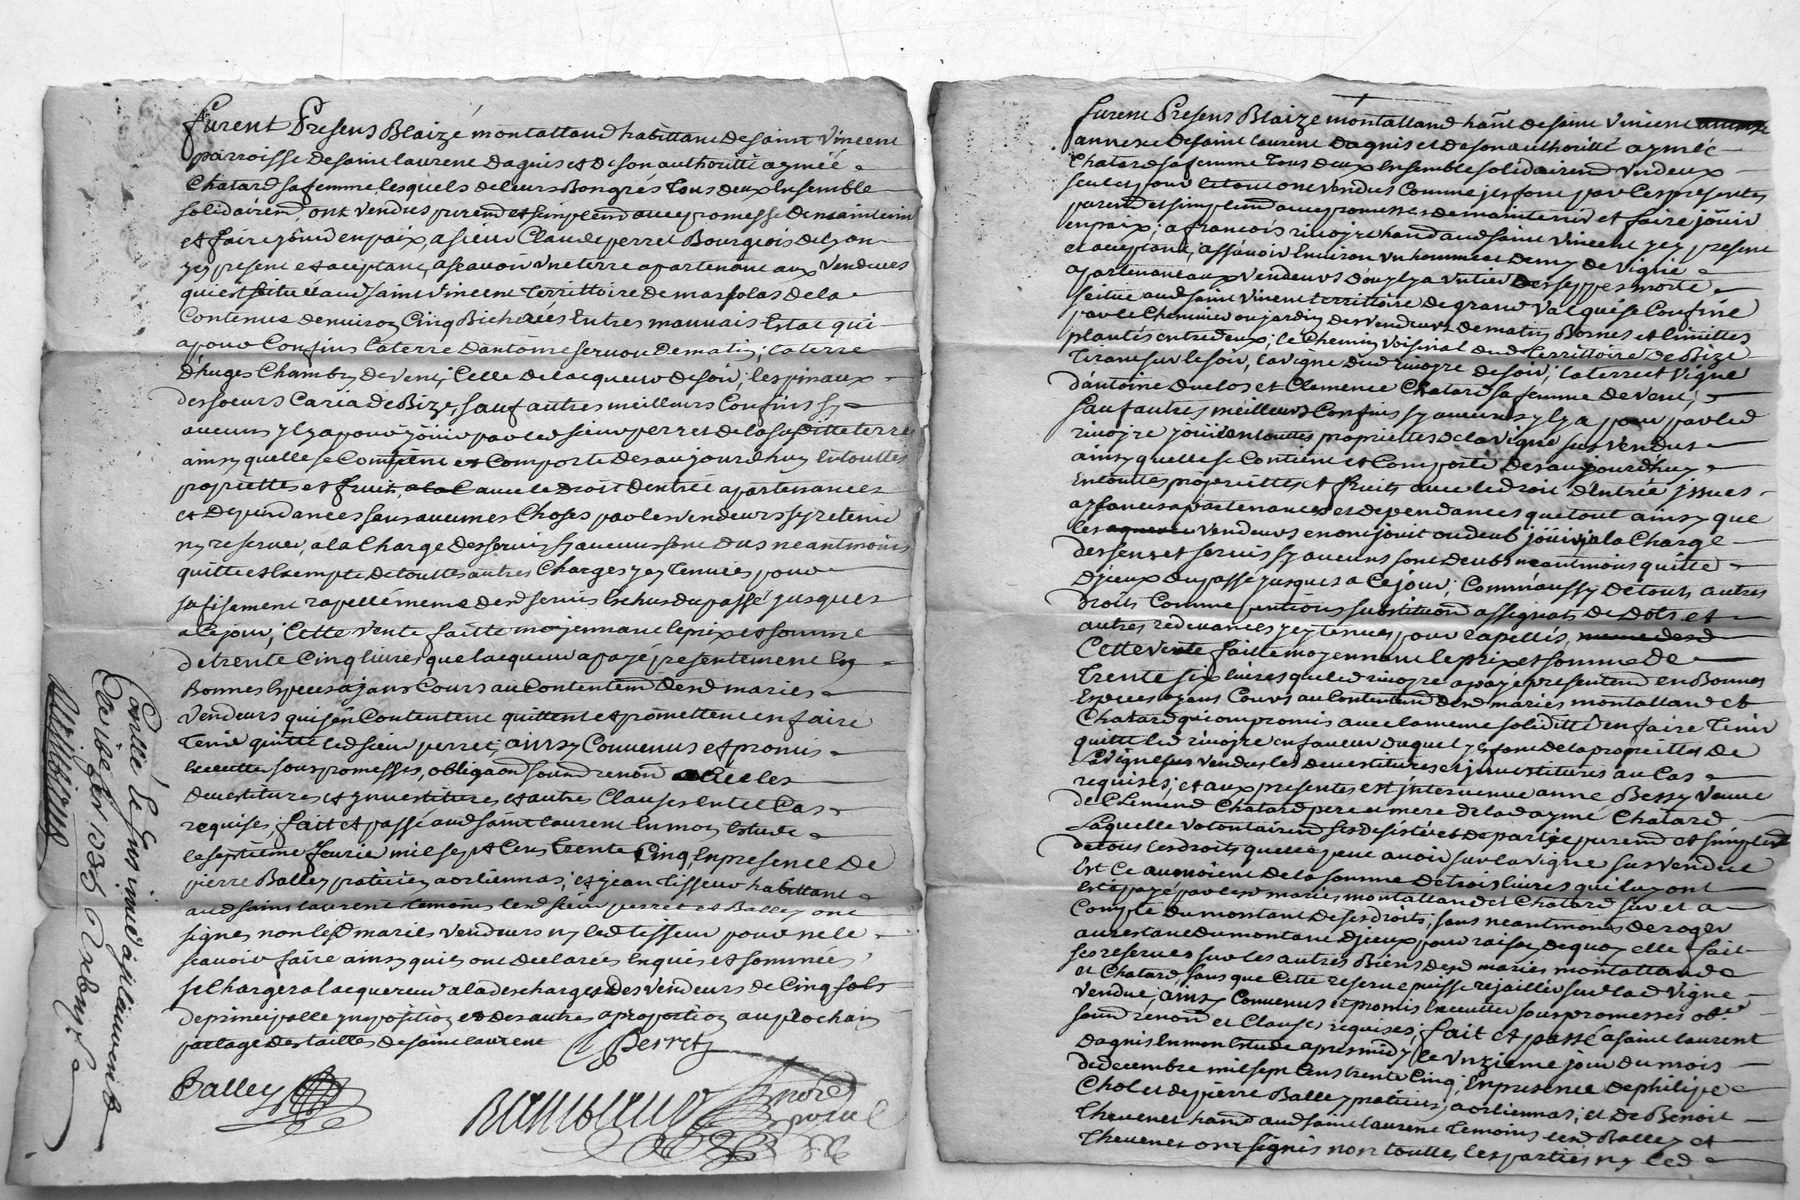 furent Presens Blaize montalland habittant de saint Vincent
parroisse de saint laurent dagnis et de son authoritté aymée
Chatard sa femme lesquels de leurs Bon grés Tous deux Ensemble
solidairemt ont vendus puremt et simplemt avec promesse de maintenir
et faire jouir en paix, a sieur Claude perret Bourgeois de Lyon
jcy present et aceptant, ascavoir une terre apartenant aux Vendeurs
qui est scituée aud saint Vincent Territtoire de massolas de la
Contenue denviron Cinq Bicherées Entres mauvais Estat qui
a pour Confins la terre dantoine servou de matin; la terre
d'huges Chamb de vent; Celle de lacquereur de soir; les pinaux
des soeurs Caria de Bize, sauf autres meilleurs Confins sy
aucuns y ly a pour jouir par led sieur perret de la susditte terre
ainsy quelle se Contient et Comporte des aujourdhuy En touttes
proprietté et fruits, avec le Droit dentrée apartenances
et Dependances sans aucunes Choses par les vendeurs sy retenir
ny reserver, a la Charge des servis sy aucuns sont dus neantmoins
quitte et Exempte de touttes autres Charges jcy tenues pour
sufisament rapellé meme desd servis Echus du passé jusques
a ce jour; Cette vente faitte moyennant le prix et somme
de trente Cinq livres que lacquereur a payé presentement En
Bonnes Especes ajant Cours au Contentemt desd mariés
vendeurs qui sen Contentent quittent et promettent en faire
Tenir quitte led sieur perret; ainsy Convenus et promis
Executter sous promesses, obligaon soumn renon et les
devestitures et jnvestitures et autres Clauses En tel Cas
requises, fait et passé aud saint laurent En mon Estude
le septieme fevrier mil sept Cens trente Cinq En presence de
pierre Balley praticien a orliennas; et jean tisseur habittant
aud saint laurent temoins led sieur perret et Balley ont
signés non lesd mariés vendeurs ny led tisseur pour ne le
scavoir faire ainsy quils ont declarées Enquis et sommées
se Chargera lacquereur a la descharge des vendeurs de Cinq sols
de principalle jmposition et des autres a proportion au prochain
partage des tailles de saint laurent
Perret
Balley
Controllé
furent Presens Blaize montalland hant de saint Vincent
annexe de saint laurent dagnis et de son authoritté aymée
Chatard sa femme Tous deux Ensemble solidairemt un deux
seul et pour le tout ont vendus Comme jls font par Ces presentes
puremt et simplemt avec promesses de maintenir et faire jouir
en paix; a francois rivoyre hant aud saint Vincent jcy present
et aceptant, assavoir Environ un homme et demy de Vigne
apartenant aux vendeurs dou y ly a un tier des seppes morte
scitué aud saint Vincent territtoire de grand Val qui se Confine
par le Chemin ou jardin des vendeurs de matin Bornes et limittes
plantés entredeux; le Chemin voisinal dud territtoire de Bize
Tirant sur le soir, la vigne dud rivoyre de soir; la terre et vigne
d'antoine duclos et Clemence Chatard sa femme de Vent;
sauf autres meilleurs Confins sy aucuns y ly a pour par led
rivoyre jouir en touttes propriettés de la vigne sus vendue
ainsy quelle se Contient et Comporte des aujourdhuy
En touttes propriettés et fruits avec le droit d'Entrée jssues
aysances apartenances et dependances que tout ainsy que
les vendeurs en ont jouit ou deub jouir, a la Charge
des sens et servis sy aucuns sont deubs neantmoins quitte
Djceux du passé jusques a Ce jour; Comm'aussy de tous autres
droits Comme pentions substitution assignats de dots et
autres redevances jcy tenues pour rapellés,
Cette vente faitte moyennant le prix et somme de
Trente six livres que led rivoyre a payé presentemt en Bonnes
Especes ayans Cours au Contentemt desd mariés montalland et
Chatard qui ont promis avec la meme solidité d'en faire Tenir
quitte led rivoyre en faveur duquel jls font de la proprietté de
la Vigne sus vendue les devestitures et jnvestitures au Cas
requises; et aux presentes est jntervenue anne Bessy veuve
de Clemend Chatard pere et mere de lad aymé Chatard
Laquelle volontairemt sest desisté et departie puremt et simplemt
de tous les droits quelle peut avoir sur la vigne sus vendue
Et Ce au moient de la somme de trois livres qui luy ont
Esté payé par lesd mariés montalland et Chatard sur et a
Compte du montant de ses droits, sans neantmoins deroger
au restant du montant Djceux, pour raison de quoy elle fait
ses reserves sur les autres Biens desd mariés montalland
et Chatard, sans que Cette reserve puisse rejaillir sur lad Vigne
vendue; ainsy Convenus et promis Executter sous promesses obon
soumn renon et Clause requises; fait et passé a saint laurent
dagnis En mon Estude apres midy le unzieme jour du mois
de decembre mil sept Cens trente Cinq, En presence de philipe
Cholet de pierre Balley praticien a orliennas, et de Benoit
Thevenet hant aud saint laurent Temoins lesd Balley et
Thevenet ont signés non touttes les parties ny led